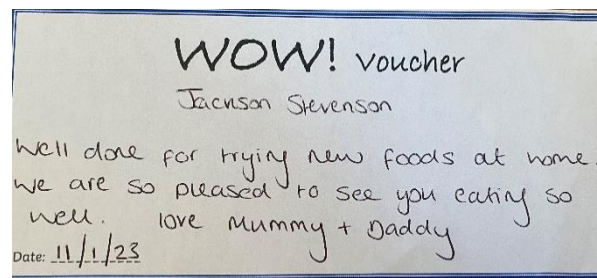 WOW! voucher
Jackson Stevenson
Well done for trying new foods at home.
We are so pleased to see you eating so
well. love Mummy + Daddy
Date: 11/1/23